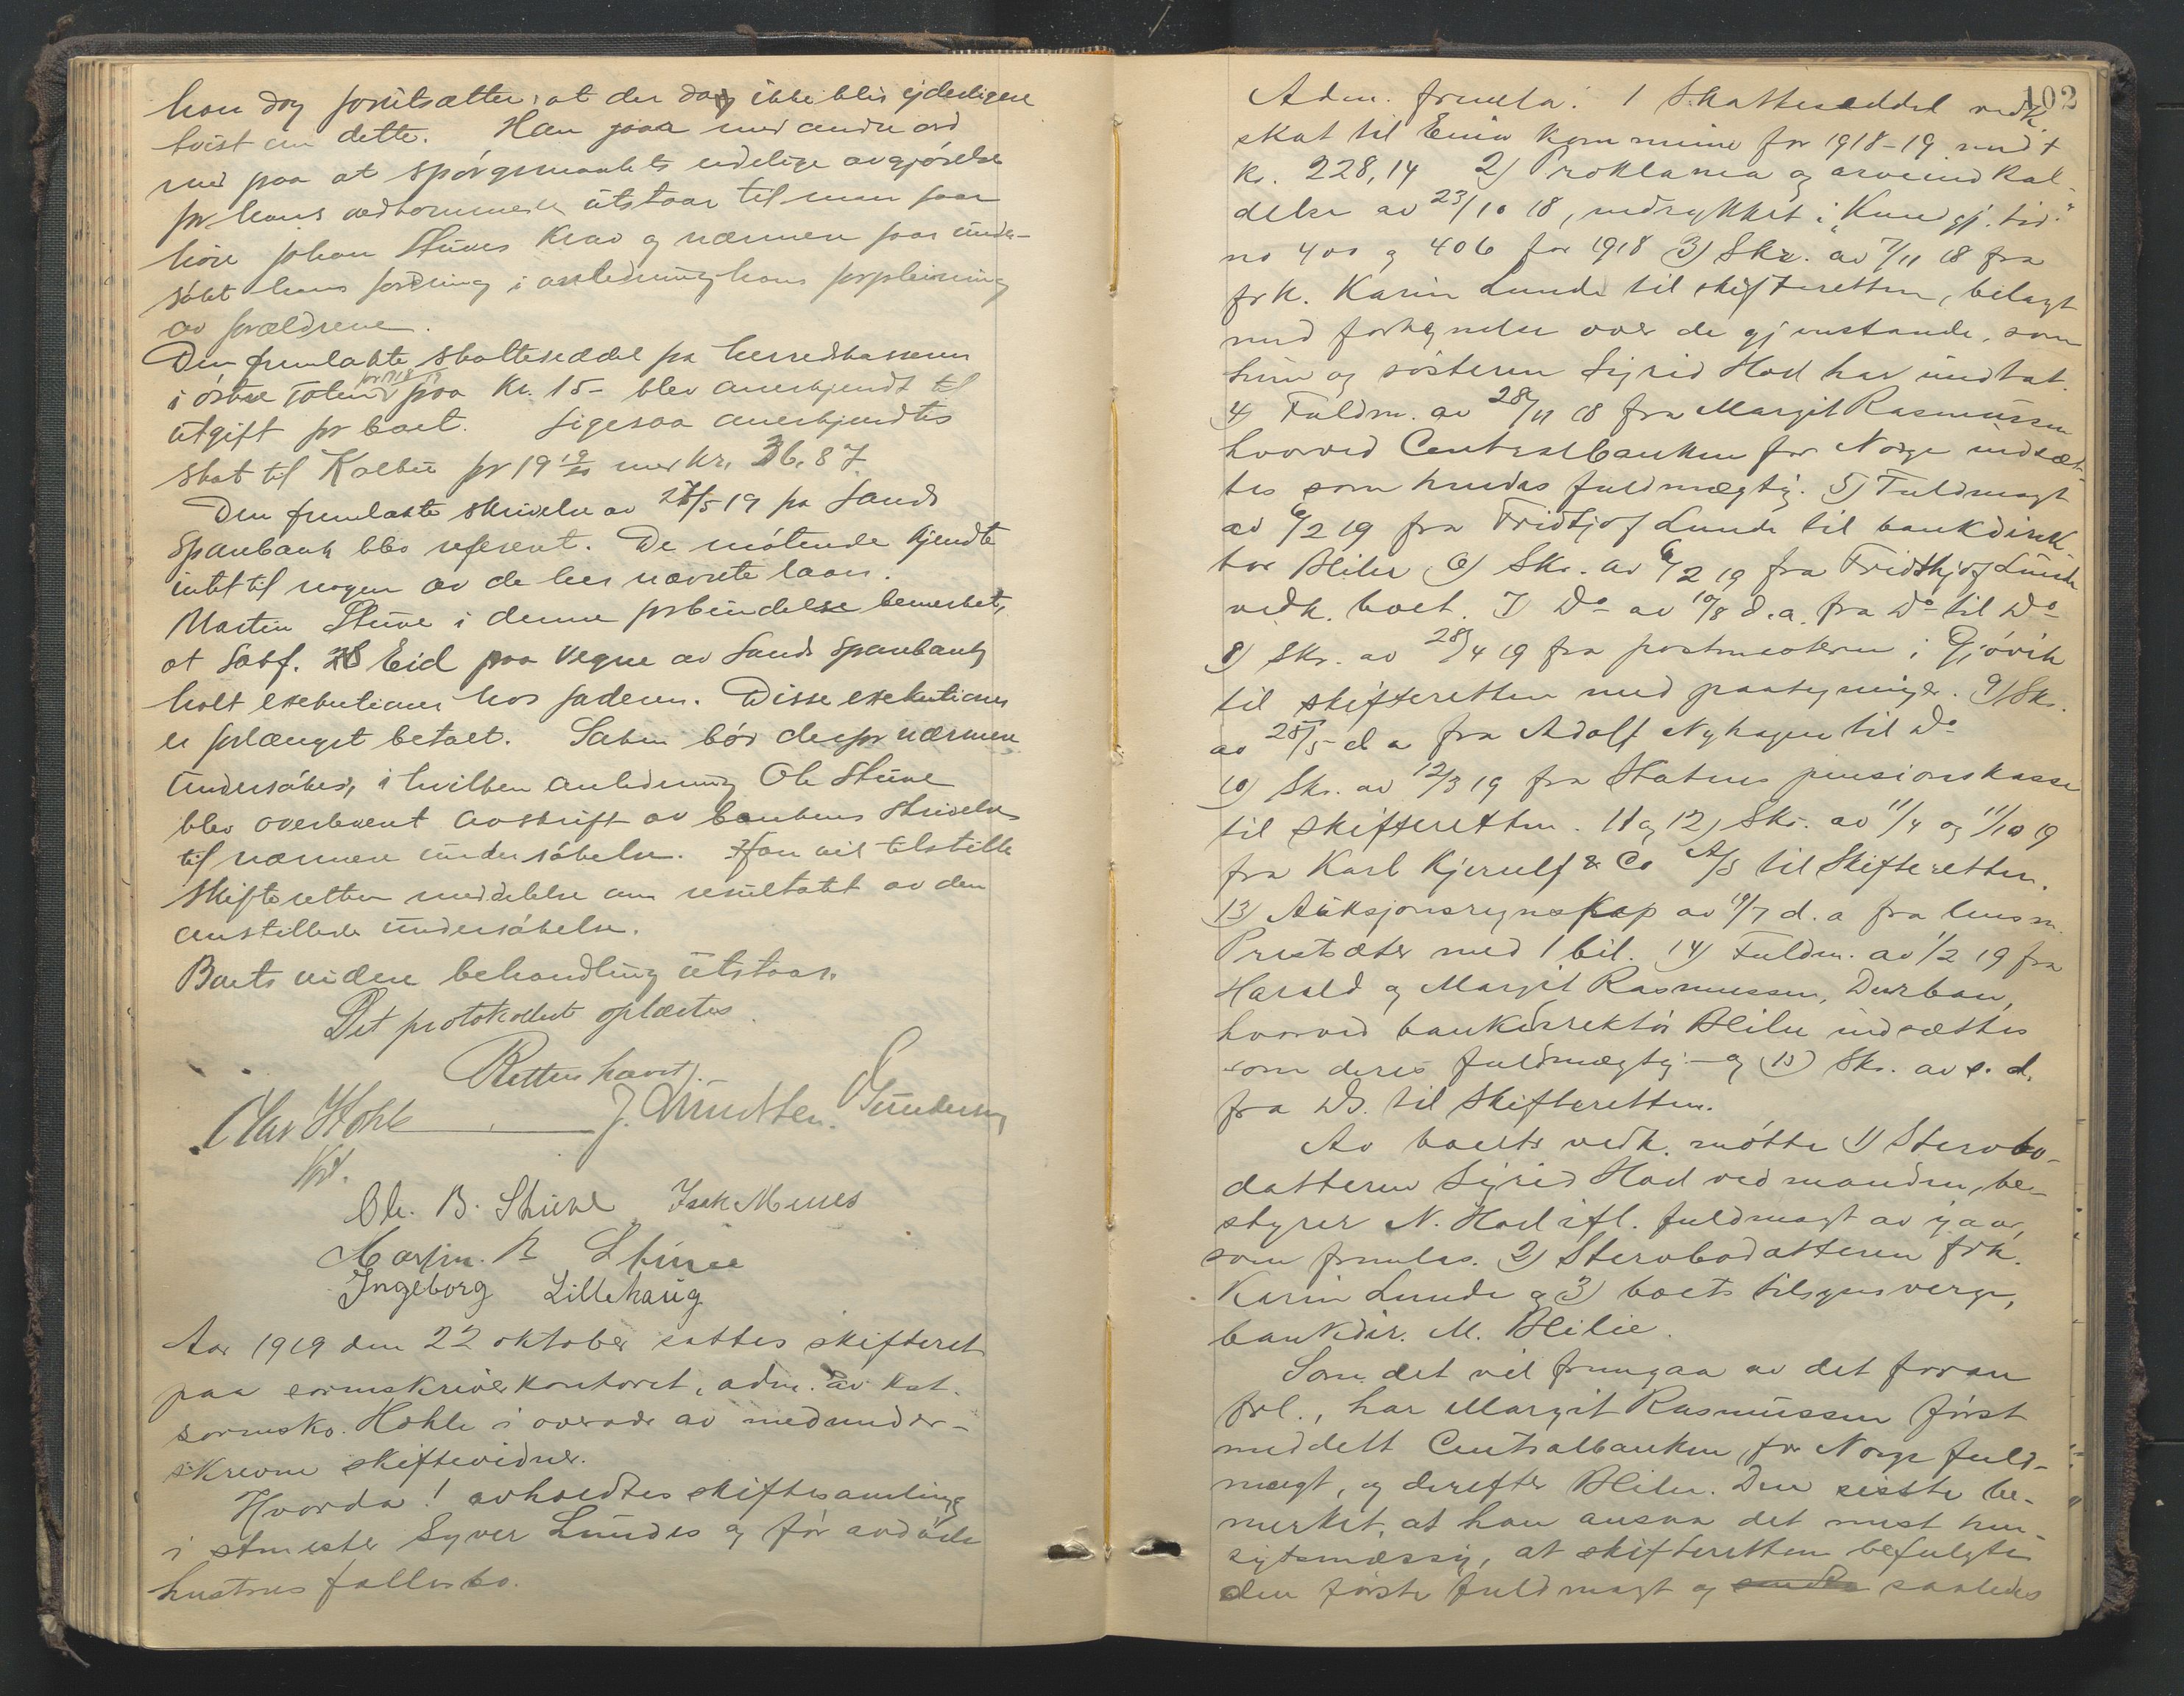 han dog forutsætter, at der dog ikke blir yderligere
tvist om dette. Han gaar med andre ord
med paa at spørgsmaalets endelige avgjørelse
for hans vedkommende utstaar til man faar
høre Johan Stuves krav og nærmere faar under-
søkt hans fordring i anledning hans forpleining
av forældrene.
Den fremlagte skatteseddel fra herredskassereren
i østre Toten for 1918/19 paa kr. 15- blev anerkjendt til
utgift for boet. Ligesaa anerkjendtes
skat til Kolbu for 19 19/20 med kr. 36.87
Den fremlagte skrivelse av 27/5 19 fra Lands
Sparebank blev referert. De møtende kjendte
intet til nogen av de her nævnte laan.
Martin Stuve i denne forbindelse bemerket,
at Sakf. Eid paa vegne av Lands Sparebank
holt exekutioner hos faderen. Disse exekutioner
er forlængst betalt. Saken bør derfor nærmere
undersøkes, i hvilken anledning Ole Stuve
blev overlevert avskrift av bankens skrivelse
til nærmere undersøkelse. Han vil tilstille
skifteretten meddelelse om resultatet av den
anstillede undersøkelse.
Boets videre behandling utstaar.
Det protokollerte oplæstes
Retten hævet.
Olav Hohle J. Knudtsen. Gundersen
Kst.
Ole. B. Stuve Isak Mures
Martin. B Stuve
Ingeborg Lillehaug
Aar 1919 den 22 oktober sattes skifteret
paa sorenskriverkontoret, adm. av kst.
sorenskr. Hohle i overvær av medunder-
skrevne skiftevidner.
Hvorda! avholdtes skiftesamling
i stmester Syver Lundes og før avdøde
hustrus fællesbo.
102
Adm. fremla: 1 Skatteseddel vedk.
skat til Eina kommune for 1918-19 med +
kr. 228,14 2) Proklama og arveindkal-
delse av 23/10 18, indrykket i "Kundgj. tid."
no 400 og 406 for 1918 3) Skr. av 7/11 18 fra
frk. Karin Lunde til skifteretten, bilagt
med fortegnelse over de gjenstande, som
hun og søsteren Sigrid Hoel har undtat.
4) Fuldm. av 28/11 18 fra Margit Rasmussen
hvorved Centralbanken for Norge indsæt-
tes som hendes fuldmægtig. 5) Fuldmagt
av 6/2 19 fra Fridtjof Lunde til bankdirek-
tør Blilie 6) Skr. av 6/2 19 fra Fridthjof Lunde
vedk. boet. 7) Do av 10/8 d.a. fra Do til Do
8) Skr. av 28/4 19 fra postmesteren i Gjøvik
til skifteretten med paategninger. 9) Skr.
av 28/5 d a fra Adolf Nyhagen til Do
10) Skr. av 12/3 19 fra Statens pensionskasse
til skifteretten. 11 og 12) Skr. av 11/4 og 11/10 19
fra Karl Kjerulf & Co A/S til Skifteretten.
13) Auksjonsregnskap av 19/7 d.a fra lensm.
Prestsæter med 1 bil. 14) Fuldm. av 1/2 19 fra
Harald og Margit Rasmussen, Durban,
hvorved bankdirektør Blilie indsættes
som deres fuldmægtig - og 15) Skr. av s. d.
fra Ds. til Skifteretten.
Av boets vedk. møtte 1) Stervbo-
datteren Sigrid Hoel ved manden, be-
styrer N. Hoel ifl. fuldmagt av igaar,
som fremlas. 2) Stervbodatteren frk.
Karin Lunde og 3) boets tilsynsverge,
bankdir. M. Blilie.
Som det vil fremgaa av det foran
frl., har Margit Rasmussen først
meddelt Centralbanken for Norge fuld-
magt, og derefter Blilie. Den sidste be-
merket, at han ansaa det mest hen-
sigtsmæssig, at skifteretten befulgte
den første fuldmagt og saaledes